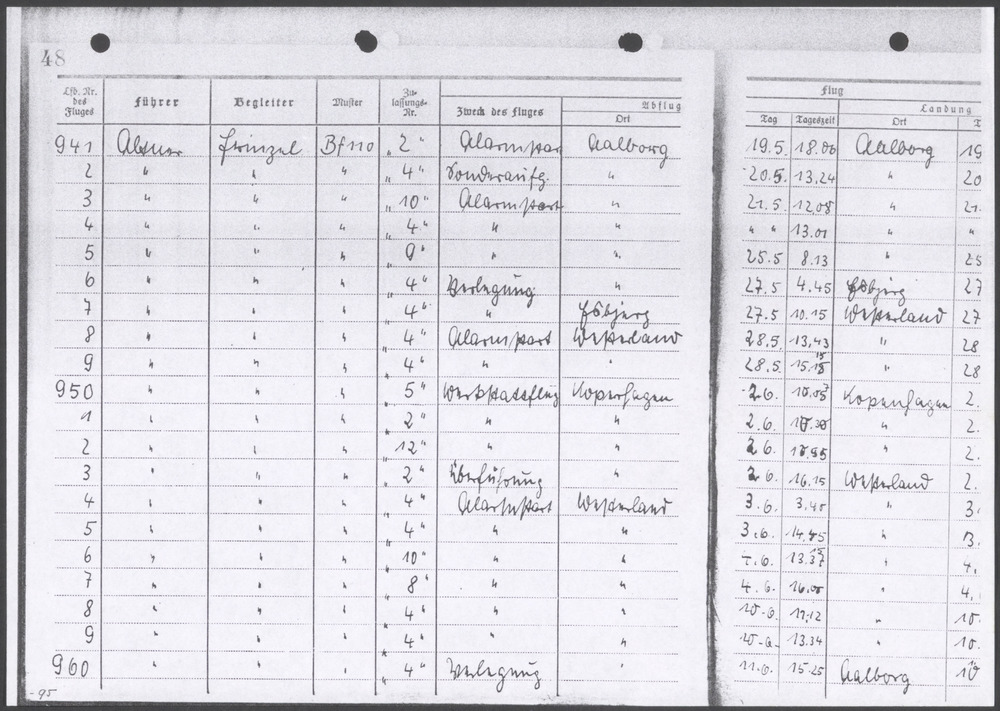 48
Lfd. Nr. des Fluges Führer Begleiter Muster Zu-lassungs-Nr. Zweck des Fluges Abflug Ort Tag Tageszeit Flug Landung Ort T
941 Bf 110 „2“ Alarmstart Aalborg 19.5. 18.00 Aalborg 19
2 " " " „4“ Sonderaufg. " 20.5. 13.24 " 20
3 " " " „10“ Alarmstart " 21.5. 12.08 " 21.
4 " " " „4“ " " " " 13.01 " "
5 " " " „9“ " " 25.5 8.13 " 25
6 " " " „4“ Verlegung " 27.5 4.45 Esbjerg 27
7 " " " „4“ " Esbjerg 27.5 10.15 Westerland 27
8 " " " „4“ Alarmstart Westerland 28.5. 13.43 " 28
9 " " " „4“ " " 28.5. " 28
950 " " " „5“ Werkstattflug Kopenhagen 2.6. Kopenhagen 2.
1 " " " „2“ " " 2.6. " 2.
2 " " " „12“ " " 2.6. " 2.
3 " " " „2“ Überführung " 2.6. 16.15 Westerland 2.
4 " " " „4“ Alarmstart Westerland 3.6. 3.45 " 3.
5 " " " „4“ " " 3.6. 14.45 " 3.
6 " " " „10“ " " 4.6. " 4.
7 " " " „8“ " " 4.6. 16.00 " 4.
8 " " " „4“ " " 10.6. " 10.
9 " " " „4“ " " 10.6. 13.34 " 10.
960 " " " „4“ Verlegung " 11.6. 15.25 Aalborg
-95